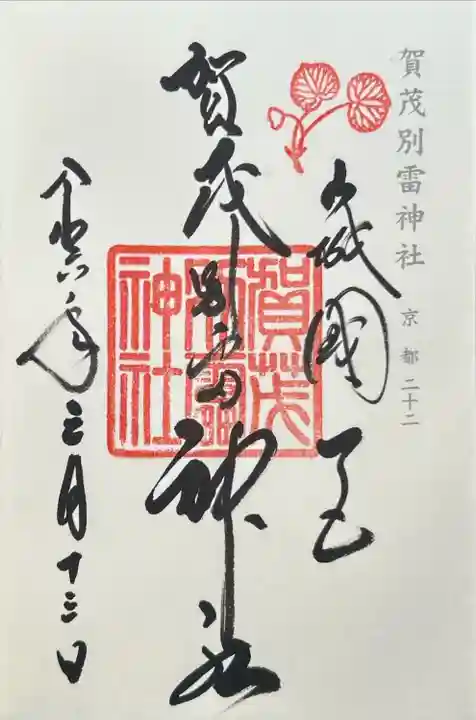 賀茂別雷神社 京都二十二
山城國一宮
賀茂別雷神社
賀茂
別雷
神社
令和六年三月十三日